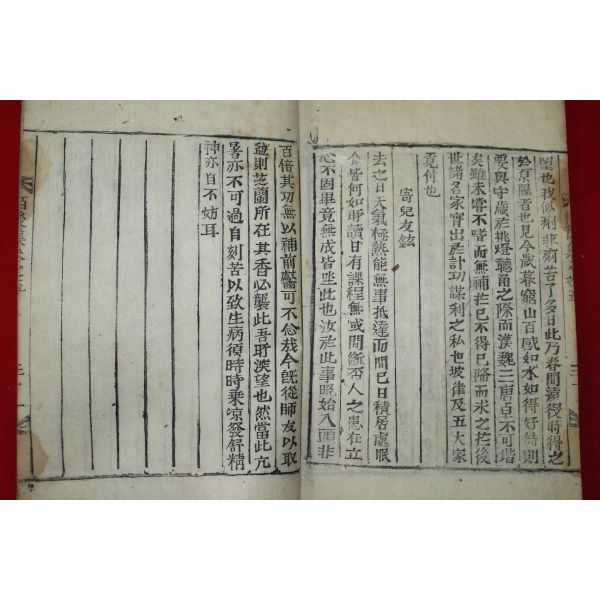 也我似
於京隔者也見今歲暮窮山百感如水如得好時則
要與守歲於挑燈聽角之際而漢魏三唐卓不可堦
矣雖未嘗不嗜而無補於已不得已降而求之於後
世諸名家實出於計功謀利之私也坡律及五大家
覓付也
寄兒友鉉
去之日天氣極熱能無事抵達而間已日積居處眠
食皆何如所讀日有課程無或間斷否人之患在立
心不固畢竟無成皆坐此也汝於此事晩始入頭非
百倍其功無以補前齾可不念哉今旣從師友以取
益則芝蘭所在其香必襲此吾所深望也然當此亢
暑亦不可過自刻苦以致生病須時時乘凉發舒精
神亦自不妨耳